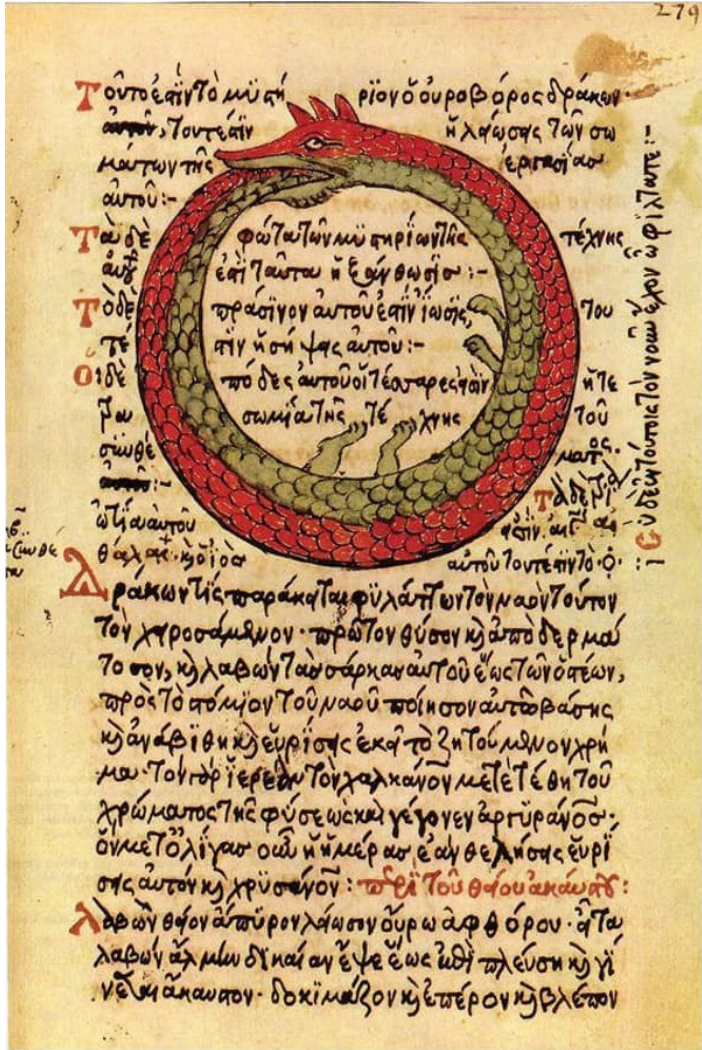 279
Τοῦτο ἐστὶν τὸ μυστήριον ὁ οὐροβόρος δράκων·
τουτέστιν ἡ λύωσης τῶν σω
μάτων τῆς ἐργασίας
αὐτοῦ:-
Τὰ δὲ φῶτα τῶν μυστηρίων τῆς τέχνης
ἐστὶ ταῦτα ἡ ξάνθωσις:-
Τὸ δὲ πράσινον αὐτοῦ ἐστὶν ἴωσις, του
τέστιν ἡ σήψης αὐτοῦ:-
Οἱ δὲ πόδες αὐτοῦ οἱ τέσσαρες ἐστὶν ἡ τε
τρασωμία τῆς τέχνης τοῦ
συνθέματος.
Τὰ δὲ τρία
ὠτία αὐτοῦ
αὐτοῦ τουτέστιν τὸ
τὸν νοῦν ἔχον ὦ φίλτατε:-
Δράκων τίς παράκειται φυλάττων τὸν ναὸν τοῦτον
τὸν χειροσάμενον· πρῶτον θύσον κ̀ ἀποδερμά
τοσον, κ̀ λαβὼν τὰς σάρκας αὐτοῦ ἕως τῶν ὀστέων,
πρὸς τὸ στόμιον τοῦ ναοῦ ποίησον αὐτῶ βάσης
κ̀ ἀνάβιθη κ̀ εὑρίσης ἐκεῖ τὸ ζητούμενον χρῆ
μα· τὸν γὰρ ἱερέαν τὸν χαλκάνον μετετέθη τοῦ
χρώματος τῆς φύσεως καὶ γέγονεν ἀργυράνος·,
ὃν μετ' ὀλίγας οὖν ἡμέρας ἐὰν θελήσης εὑρί
σης αὐτὸν κ̀ χρυσάνον: περὶ τοῦ θείου ἀκαύστου:
Λαβὼν θεῖον ἄπυρον λύωσον οὔρω ἀφθόρου· εἶτα
λαβὼν ἅλμην δικαίαν ἕψε ἕως ἐπιπλεύση κ̀ γί
νεται ἄκαυστον· δοκίμαζον κ̀ ἐπέρον κ̀ βλέπον